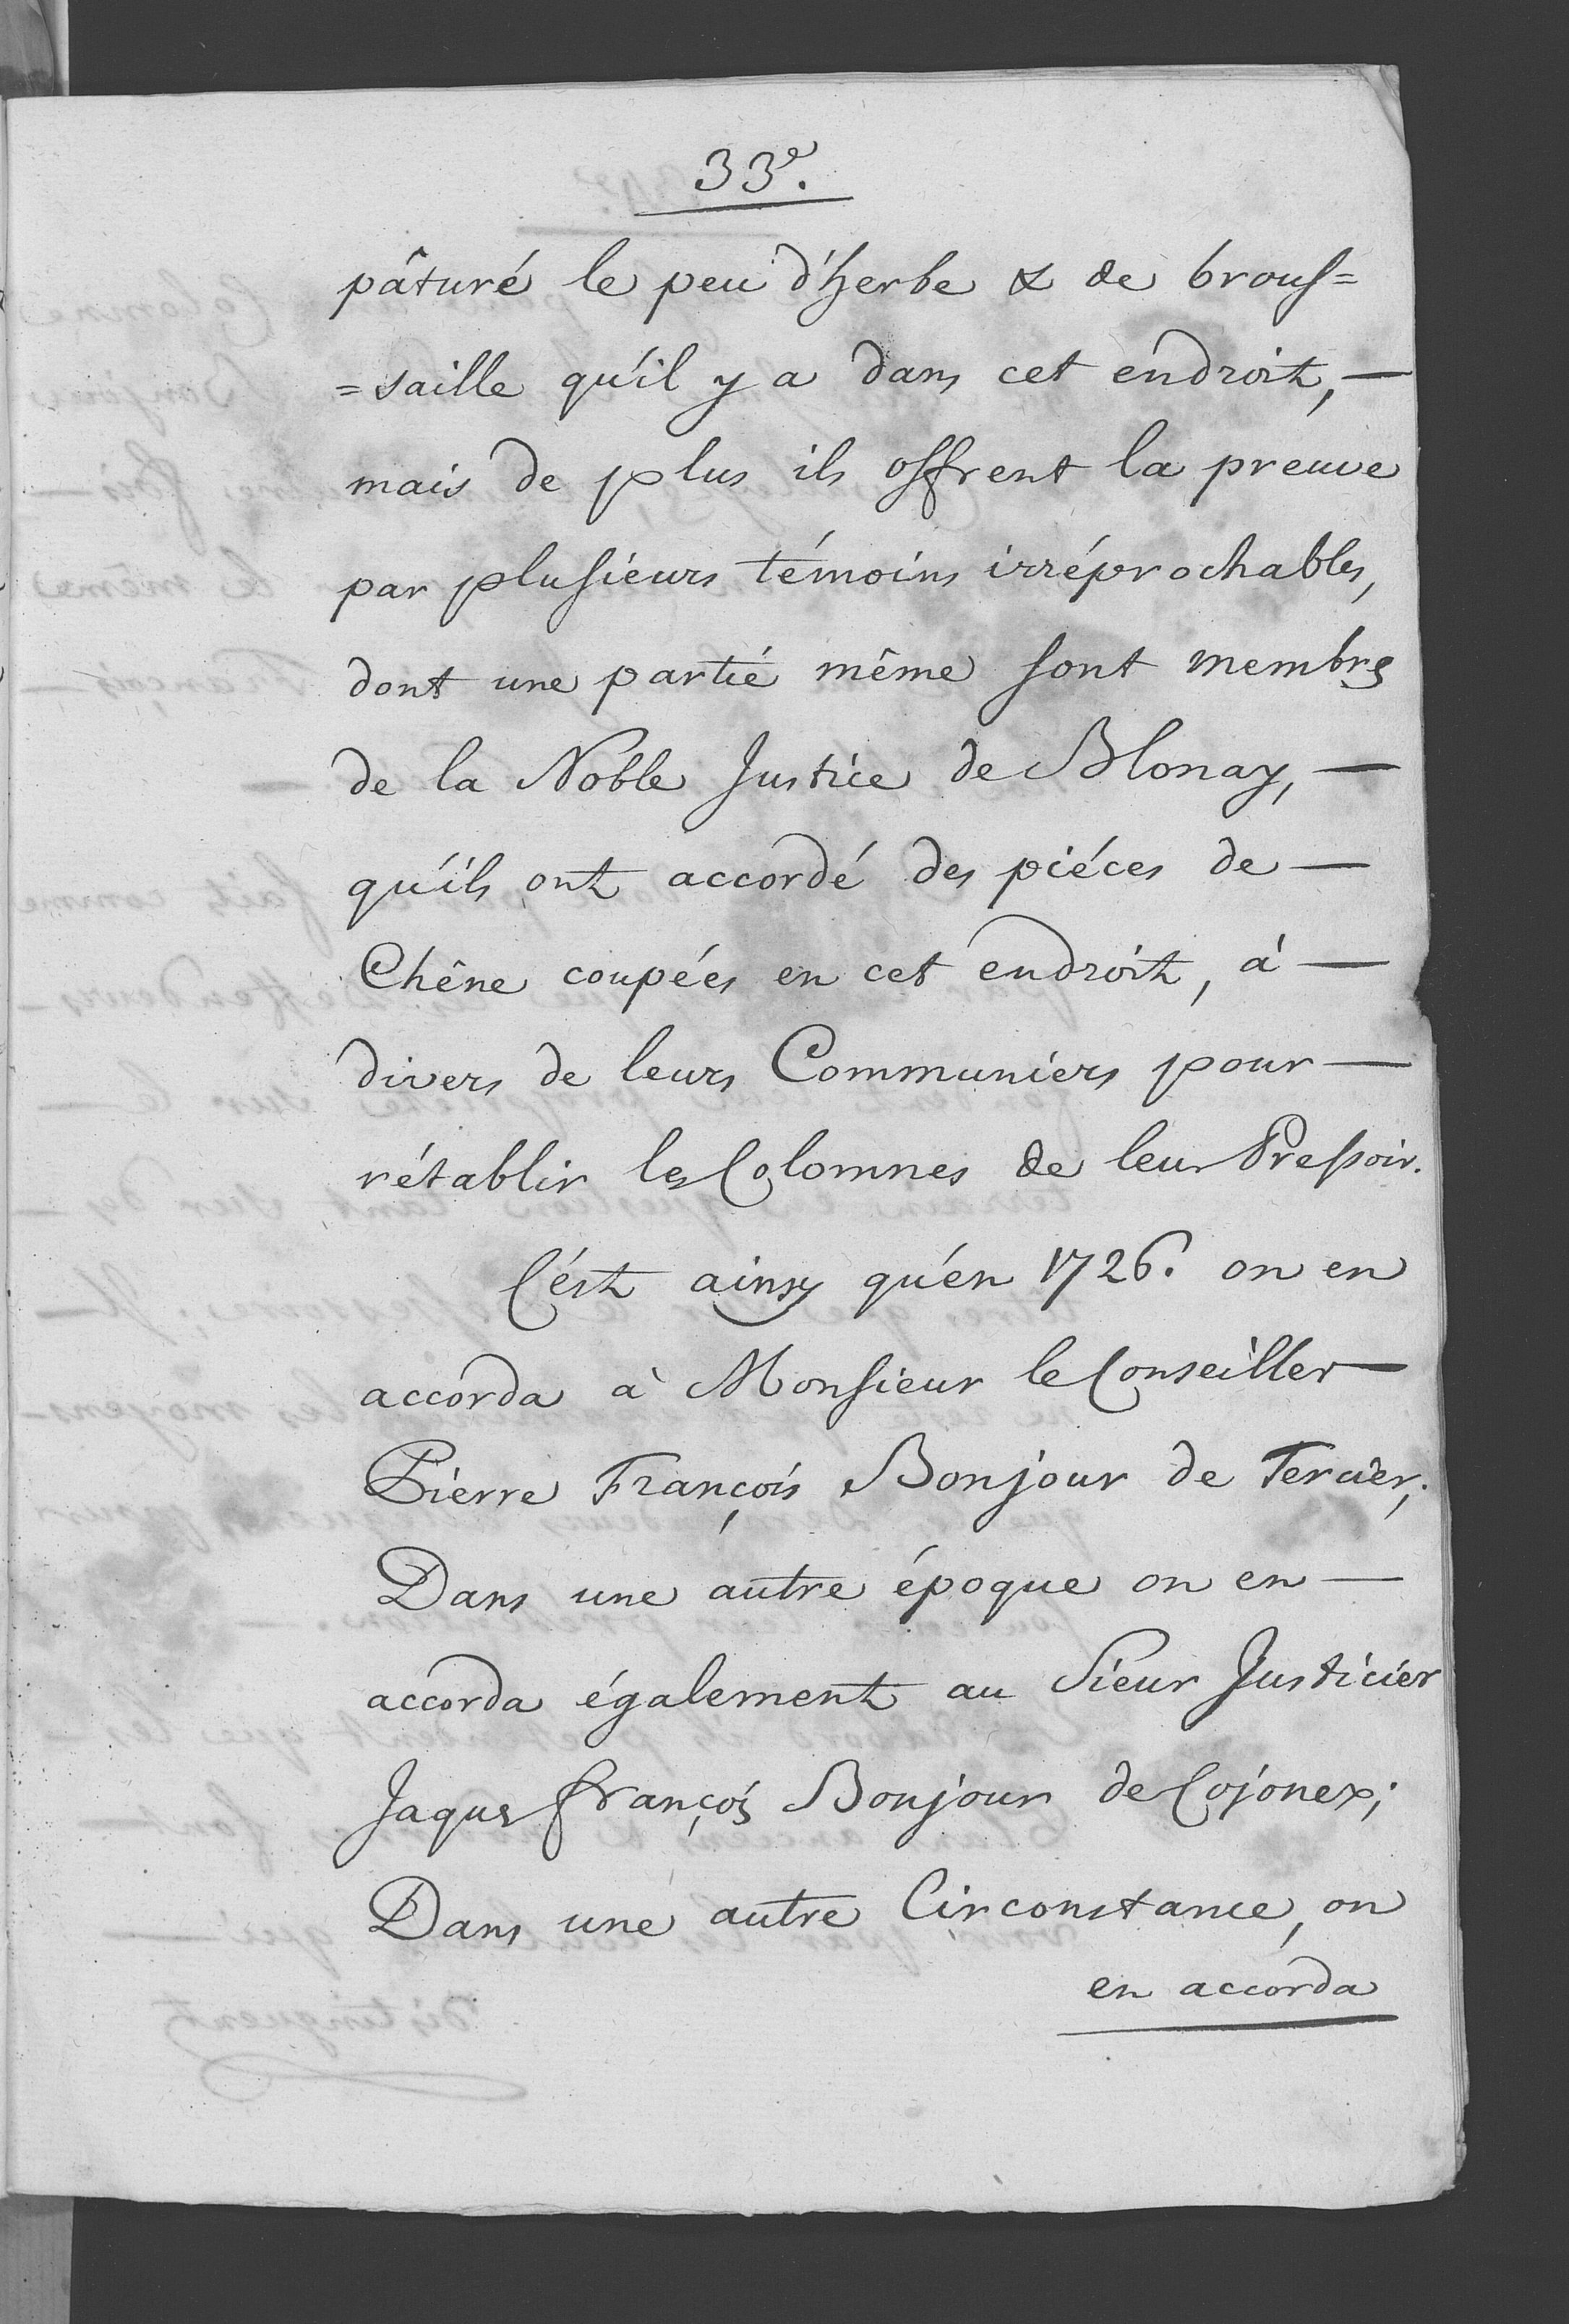 33e.
pâturé le peu d'herbe & de brous=
=saille qu'il y a dans cet endroit, —
mais de plus ils offrent la preuve
par plusieurs témoins irréprochables,
dont une partie même sont membres
de la Noble Justice de Blonay, —
qu'ils ont accordé des piéces de —
Chêne coupées en cet endroit, à —
divers de leurs Communiers pour —
rétablir les Colomnes de leur Pressoir.
C'est ainsy qu'en 1726. on en
accorda à Monsieur le Conseiller —
Pierre François Bonjour de Tercier,
Dans une autre époque on en —
accorda également au Sieur Justicier
Jaques François Bonjour de Cojonex;
Dans une autre Circonstance, on
en accorda